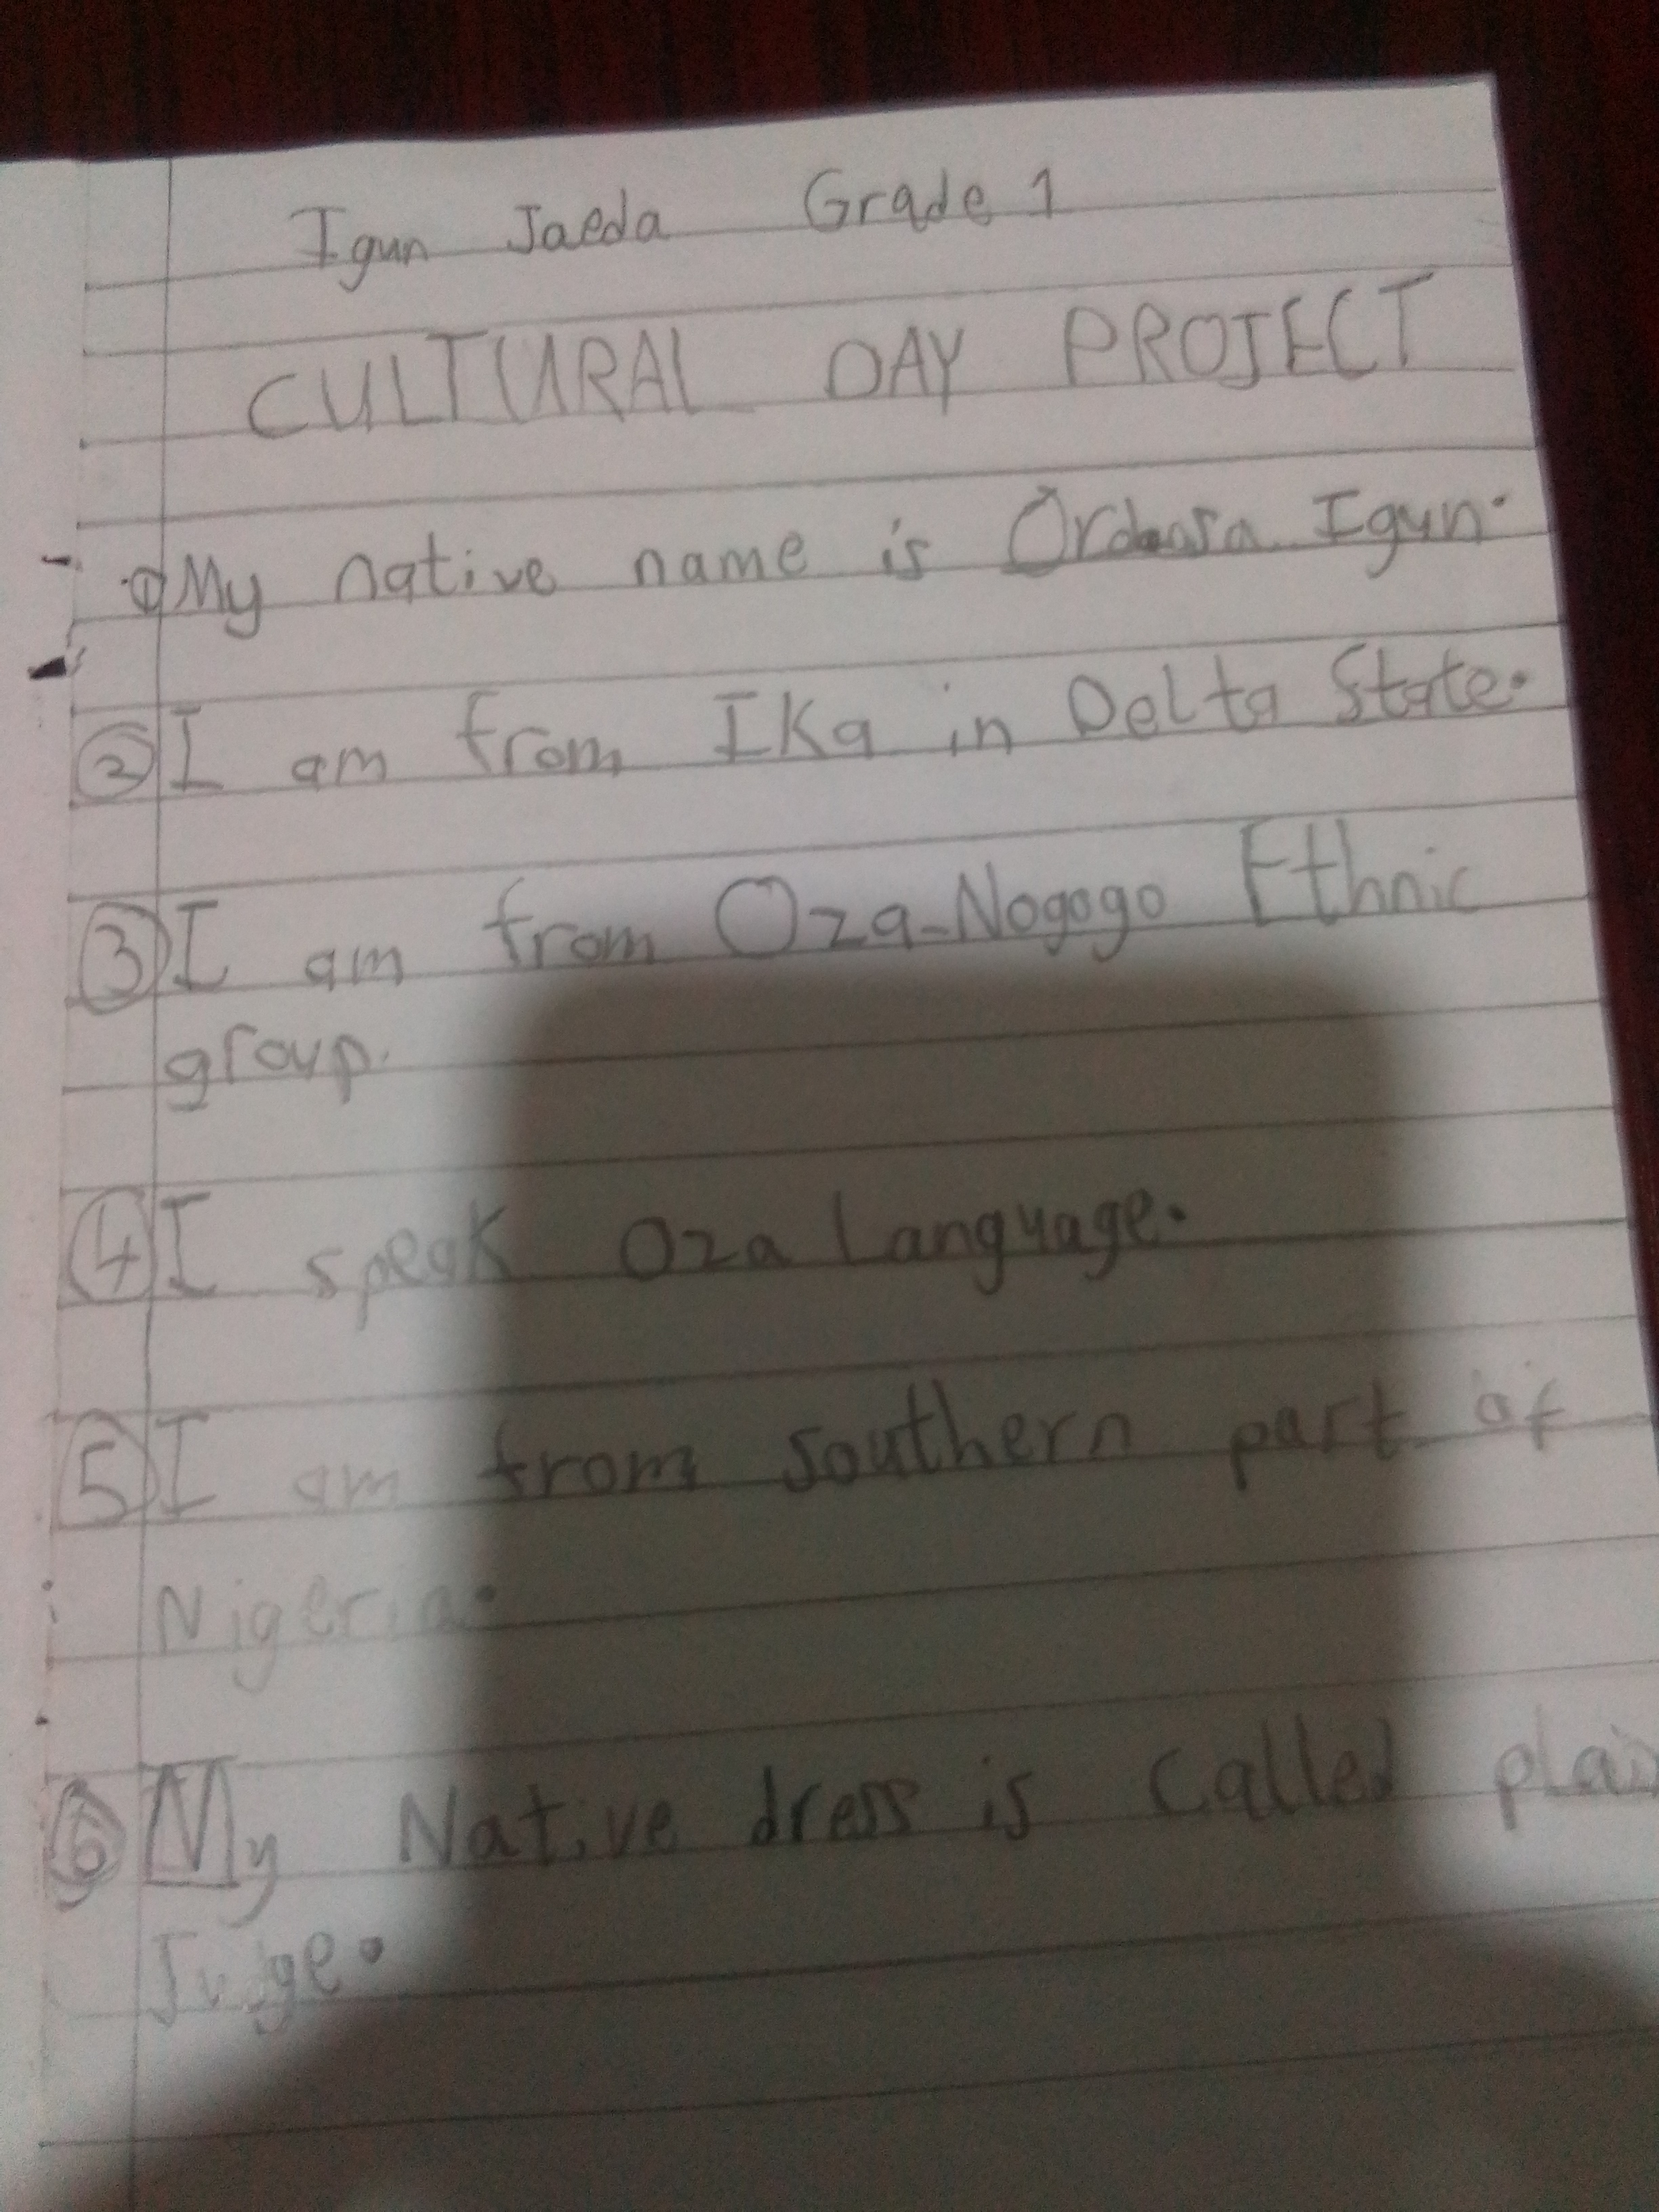 Igun Jaeda Grade 1
CULTURAL DAY PROJECT
① My native name is Igun.
② I am from Ika in Delta State.
③ I am from Oza-Nogogo Ethnic
group.
④ I speak Oza Language.
⑤ I am from Southern part of
Nigeria.
⑥ My Native dress is called